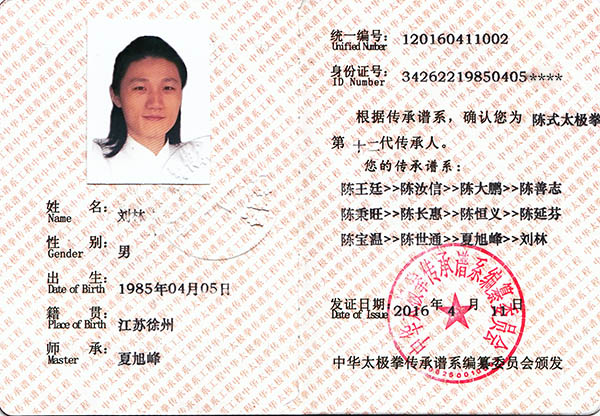 姓 名: 刘林
Name
性 别: 男
Gender
出 生: 1985年04月05日
Date of Birth
籍 贯: 江苏徐州
Place of Birth
师 承: 夏旭峰
Master
统一编号: 120160411002
Unified Number
身份证号: 34262219850405****
ID Number
根据传承谱系，确认您为 陈式太极拳
第 十一 代传承人。
您的传承谱系:
陈王廷>>陈汝信>>陈大鹏>>陈善志
陈秉旺>>陈长惠>>陈恒义>>陈延芬
陈宝温>>陈世通>>夏旭峰>>刘林
发证日期: 2016 年 4 月 11 日
Date of Issue
中华太极拳传承谱系编纂委员会颁发
中华太极拳传承谱系编纂委员会